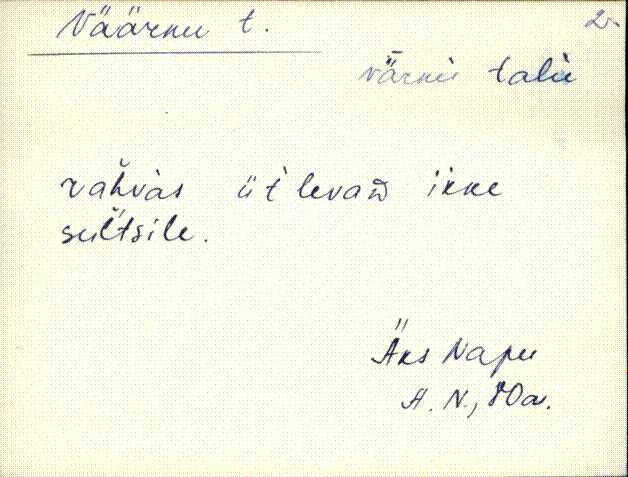 Väärnu t.
2.
vär̄nu talu
rahvas üt́levaD ikke
sult́sile.
Äks Napu
A. N., 80a.